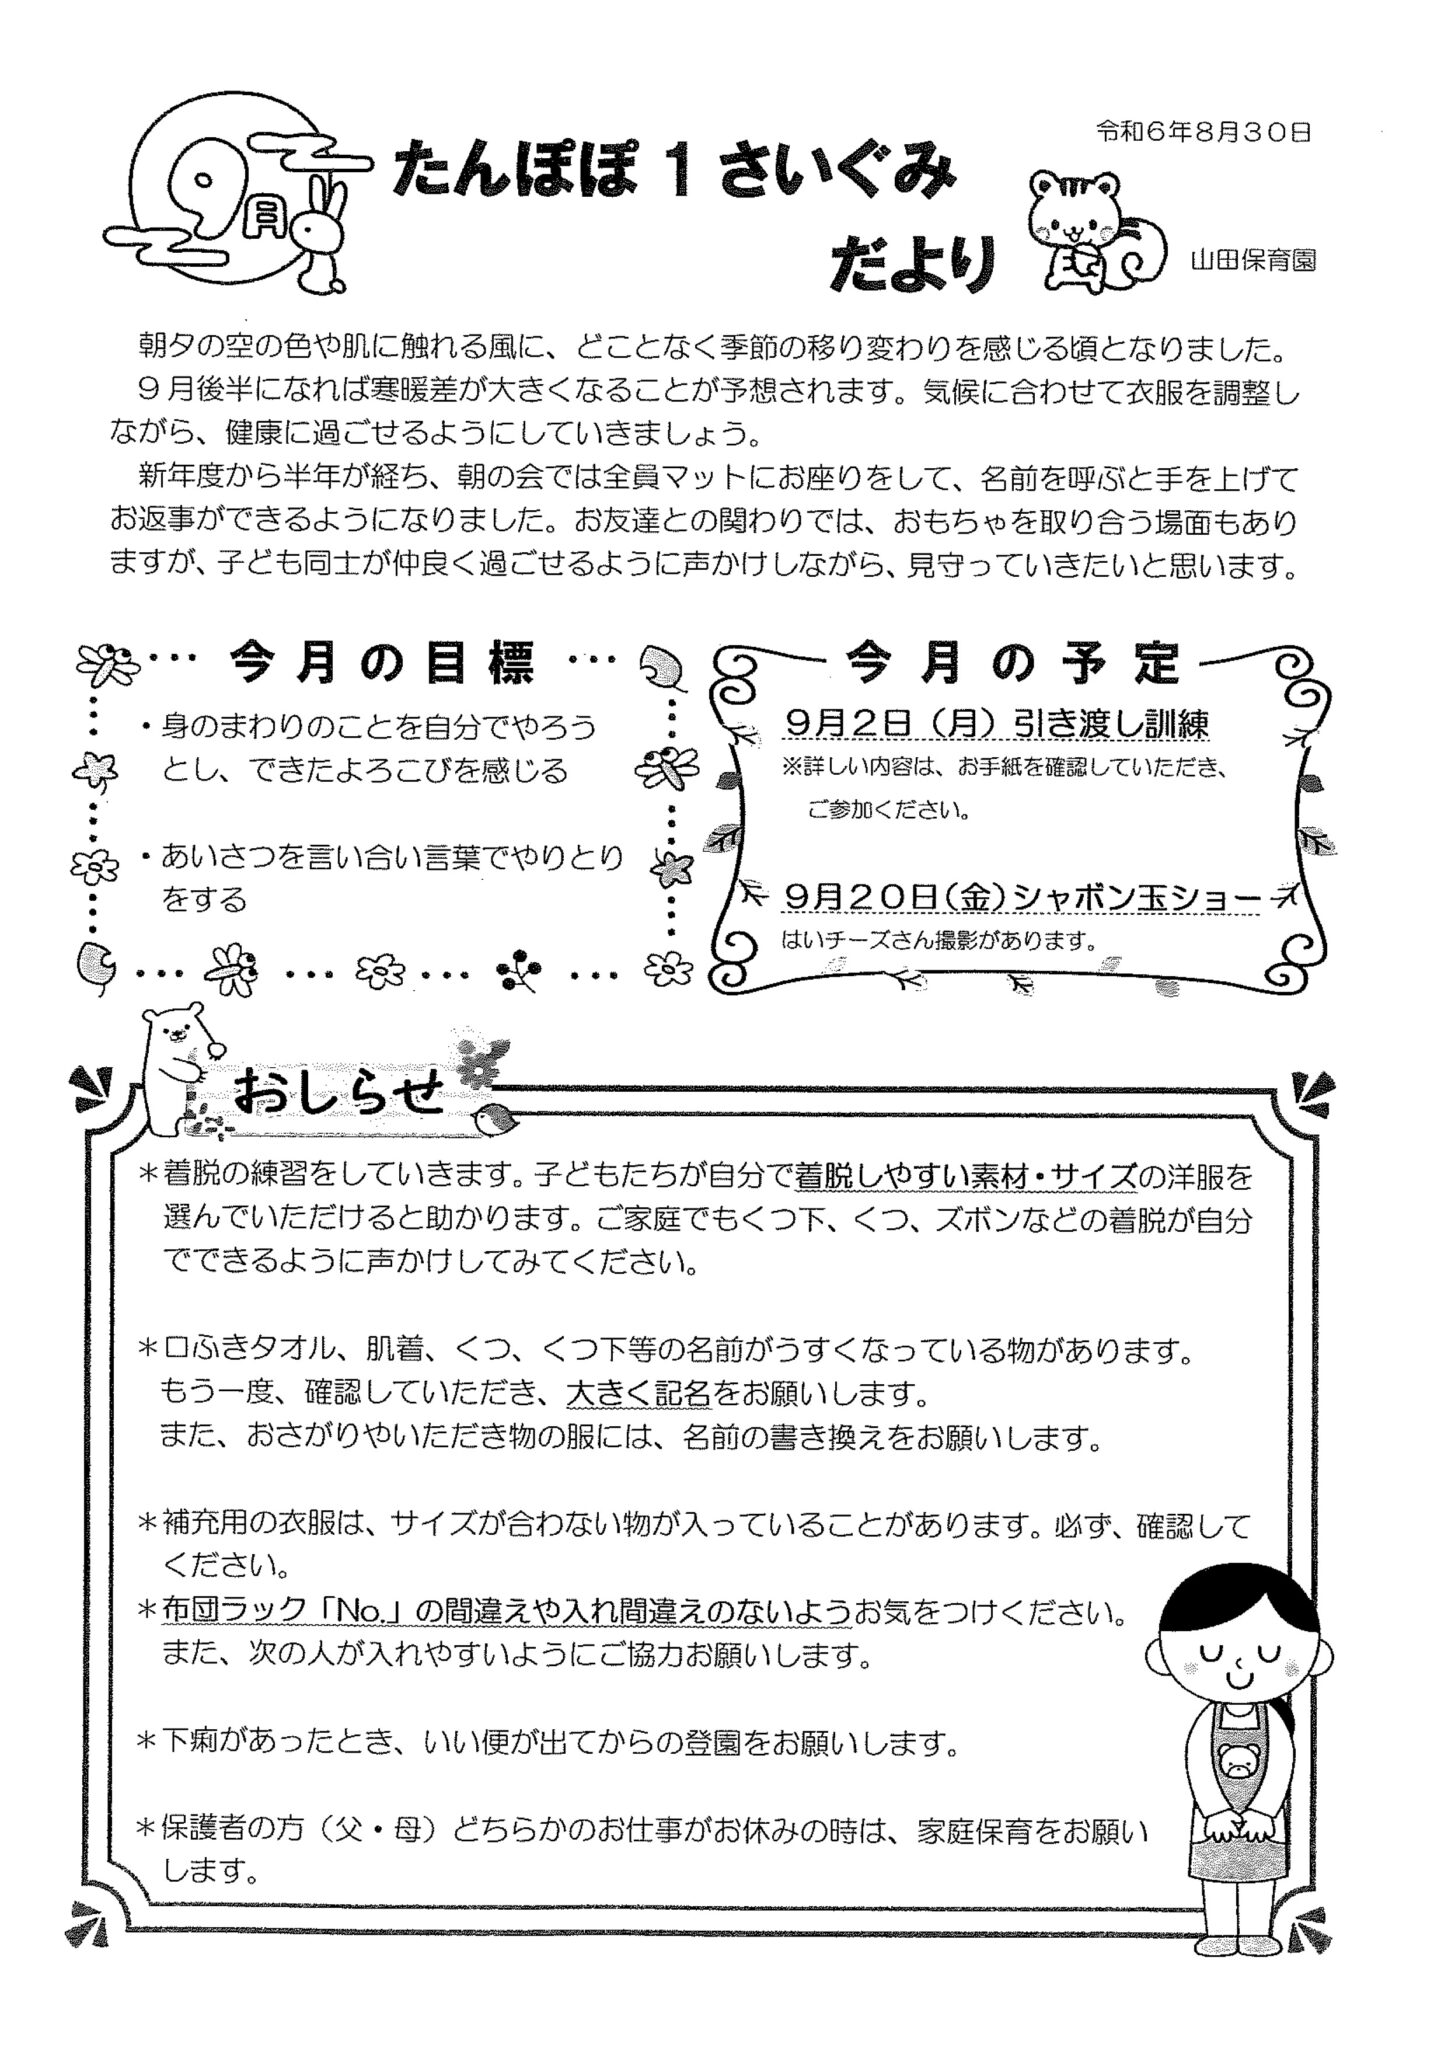 令和6年8月30日
9月
たんぽぽ1さいぐみ
だより
山田保育園
朝夕の空の色や肌に触れる風に、どことなく季節の移り変わりを感じる頃となりました。
9月後半になれば寒暖差が大きくなることが予想されます。気候に合わせて衣服を調整し
ながら、健康に過ごせるようにしていきましょう。
新年度から半年が経ち、朝の会では全員マットにお座りをして、名前を呼ぶと手を上げて
お返事ができるようになりました。お友達との関わりでは、おもちゃを取り合う場面もあり
ますが、子ども同士が仲良く過ごせるように声かけしながら、見守っていきたいと思います。
今月の目標
・身のまわりのことを自分でやろう
とし、できたよろこびを感じる
・あいさつを言い合い言葉でやりとり
をする
今月の予定
9月2日（月）引き渡し訓練
※詳しい内容は、お手紙を確認していただき、
ご参加ください。
9月20日（金）シャボン玉ショー
はいチーズさん撮影があります。
おしらせ
＊着脱の練習をしていきます。子どもたちが自分で着脱しやすい素材・サイズの洋服を
選んでいただけると助かります。ご家庭でもくつ下、くつ、ズボンなどの着脱が自分
でできるように声かけしてみてください。
＊口ふきタオル、肌着、くつ、くつ下等の名前がうすくなっている物があります。
もう一度、確認していただき、大きく記名をお願いします。
また、おさがりやいただき物の服には、名前の書き換えをお願いします。
＊補充用の衣服は、サイズが合わない物が入っていることがあります。必ず、確認して
ください。
＊布団ラック「No.」の間違えや入れ間違えのないようお気をつけください。
また、次の人が入れやすいようにご協力お願いします。
＊下痢があったとき、いい便が出てからの登園をお願いします。
＊保護者の方（父・母）どちらかのお仕事がお休みの時は、家庭保育をお願い
します。